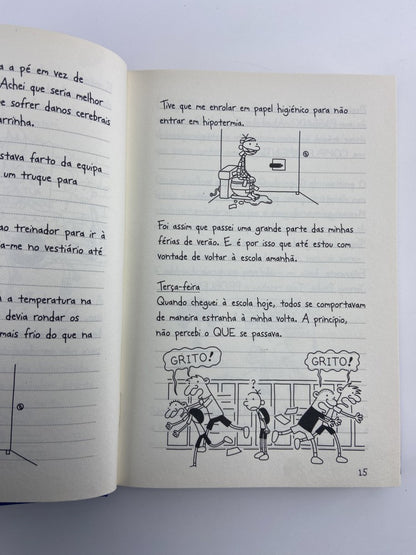 a a pé em vez de
Achei que seria melhor
e sofrer danos cerebrais
arrinha.
stava farto da equipa
um truque para
ao treinador para ir à
a-me no vestiário até
a a temperatura na
devia rondar os
mais frio do que na
Tive que me enrolar em papel higiénico para não
entrar em hipotermia.
Foi assim que passei uma grande parte das minhas
férias de verão. E é por isso que até estou com
vontade de voltar à escola amanhã.
Terça-feira
Quando cheguei à escola hoje, todos se comportavam
de maneira estranha à minha volta. A princípio,
não percebi o QUE se passava.
GRITO!
?
GRITO!
15